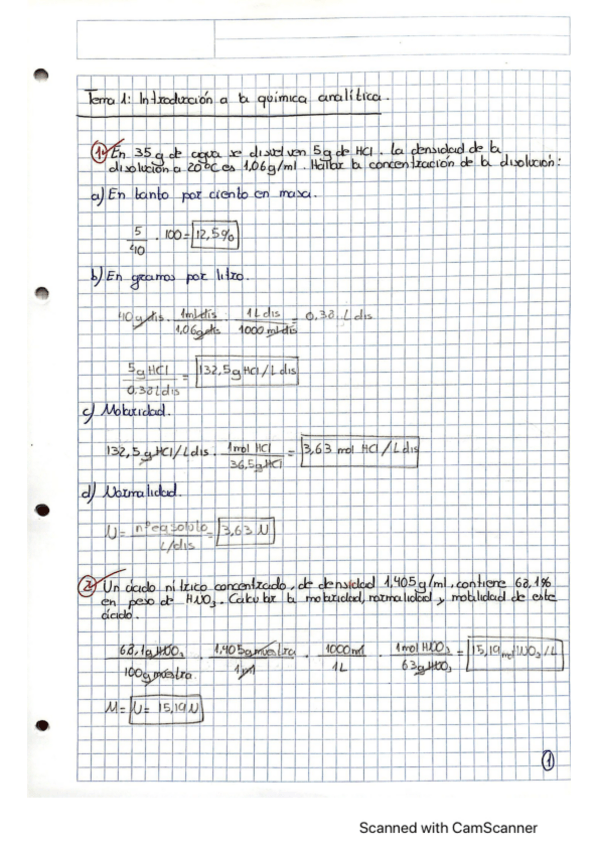 Tema 1: Introducción a la química analítica.
1. En 35 g de agua se disuelven 5g de HCl. La densidad de la
disolución a 20ºC es 1,06 g/ml. Hallar la concentración de la disolución:
a) En tanto por ciento en masa.
5/40 . 100 = 12,5%
b) En gramos por litro.
40 g dis . 1ml dis/1,06g dis . 1L dis/1000 ml dis = 0,38 L dis
5g HCl/0.38 L dis = 132,5g HCl/L dis
c) Molaridad.
132,5 g HCl/L dis . 1mol HCl/36,5g HCl = 3,63 mol HCl/L dis
d) Normalidad.
N = nº eq soluto/L/dis = 3,63 N
2. Un ácido nítrico concentrado, de densidad 1,405 g/ml, contiene 68,1%
en peso de HNO3. Calcular la molaridad, normalidad y molalidad de este
ácido.
68,1g HNO3/100g muestra . 1,405g muestra/1ml . 1000ml/1L . 1mol HNO3/63g HNO3 = 15,19 mol HNO3/L
M = N = 15,19 N
1
Scanned with CamScanner